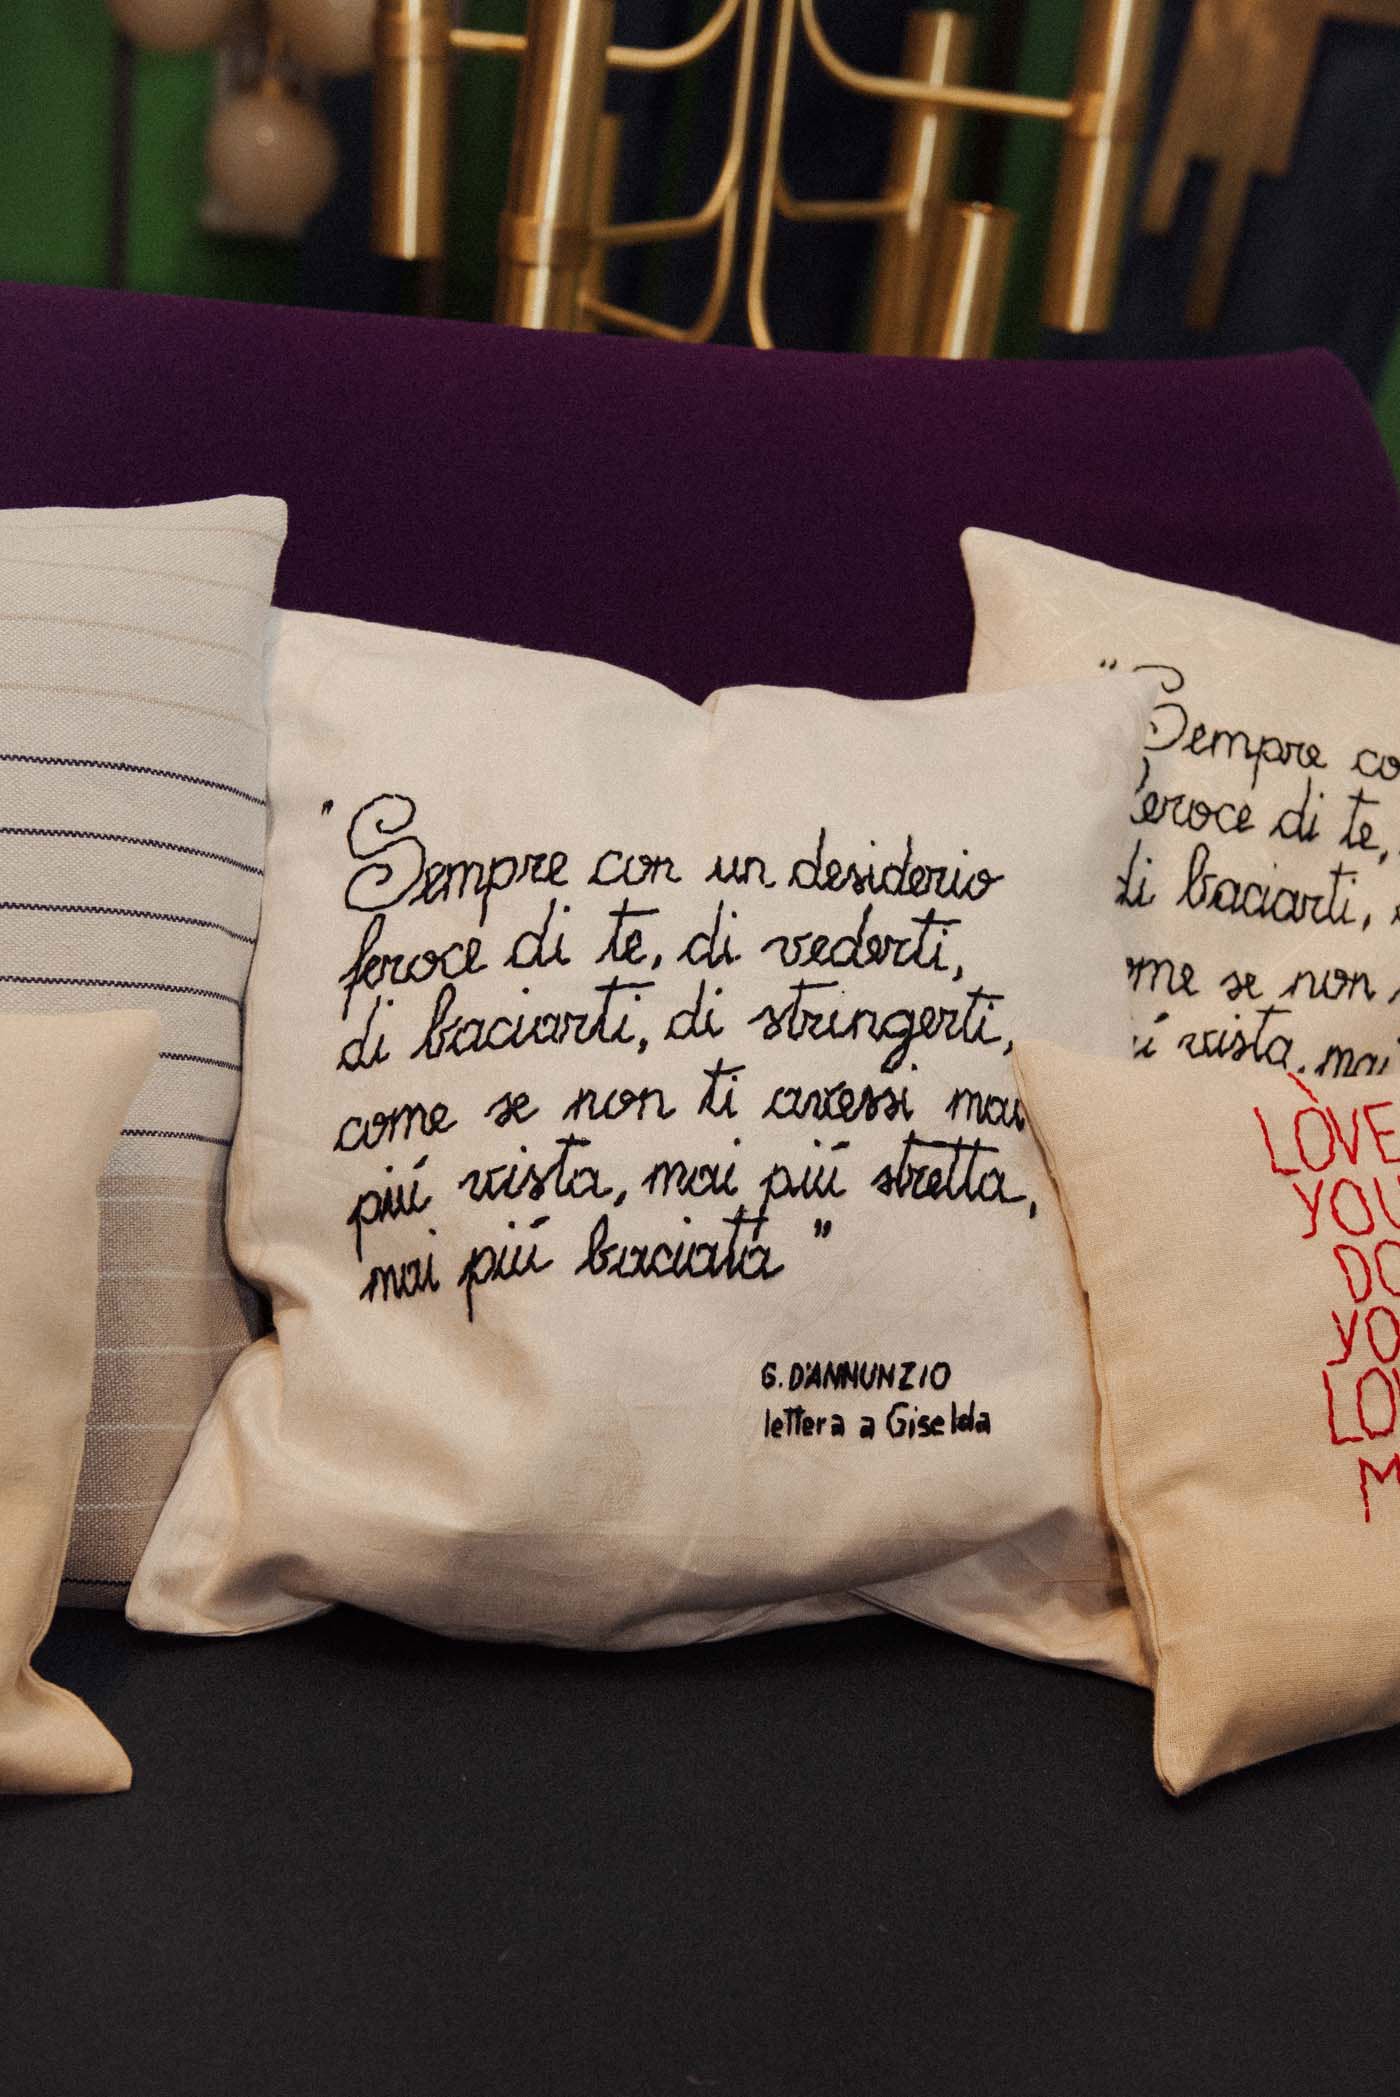 "Sempre con un desiderio
feroce di te, di vederti,
di baciarti, di stringerti,
come se non ti avessi mai
piú vista, mai piú stretta,
mai piú baciata"
G. D'ANNUNZIO
lettera a Giselda
"Sempre co
feroce di te,
di baciarti,
me se non
ú vista, mai
LOVE
YOU
DO
YO
LO
M